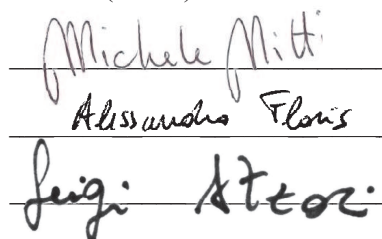 Michele Nitti
Alessandro Floris
Luigi Atzori